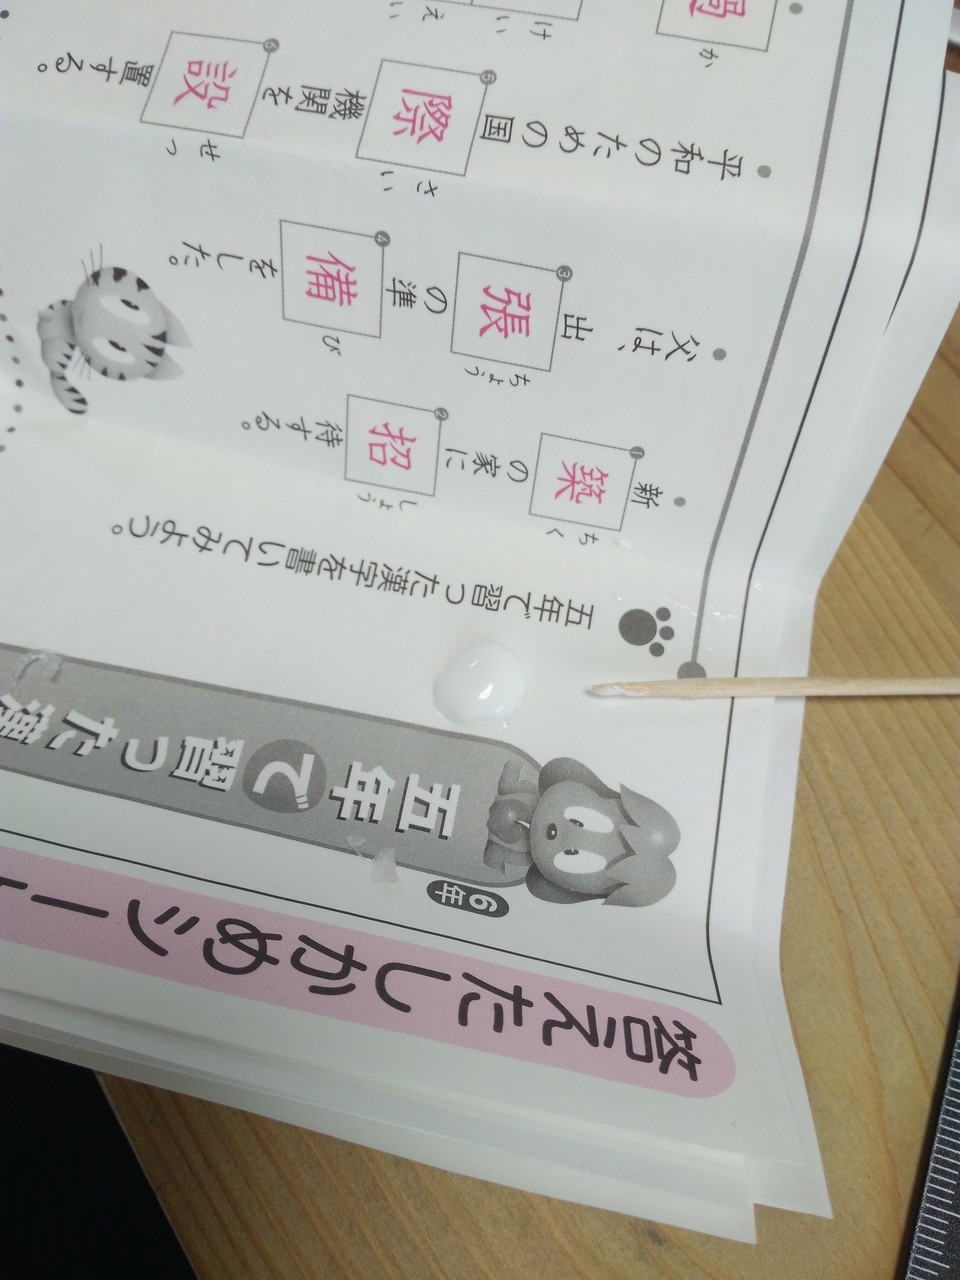 答えたしかめシー
6年
五年で習った漢
五年で習った漢字を書いてみよう。
新 1 築 ちく の家に 2 招 しょう 待する。
父は、出 3 張 ちょう の準 4 備 び をした。
平和のための国 5 際 さい 機関を 6 設 せっ 置する。
か
けい
えい